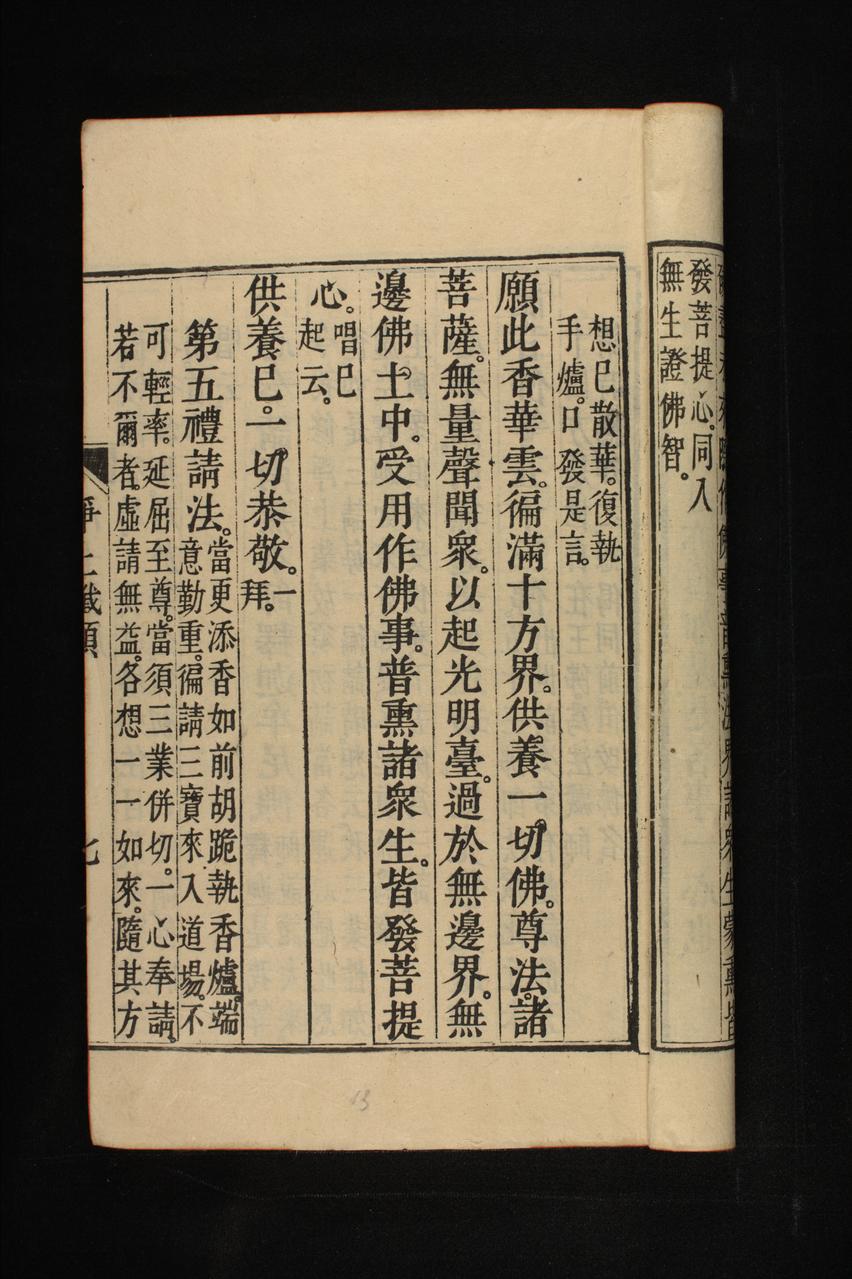 發菩提心。同入
無生證佛智。
想已散華。復執
手爐。口發是言。
願此香華雲。徧滿十方界。供養一切佛。尊法。諸
菩薩。無量聲聞衆。以起光明臺。過於無邊界。無
邊佛土中。受用作佛事。普熏諸衆生。皆發菩提
心。唱已
起云。
供養已。一切恭敬。一
拜。
第五禮請法。當更添香如前胡跪執香爐。端
意勤重。徧請三寶來入道場。不
可輕率。延屈至尊。當須三業併切。一心奉請。
若不爾者。虛請無益。各想一一如來。隨其方